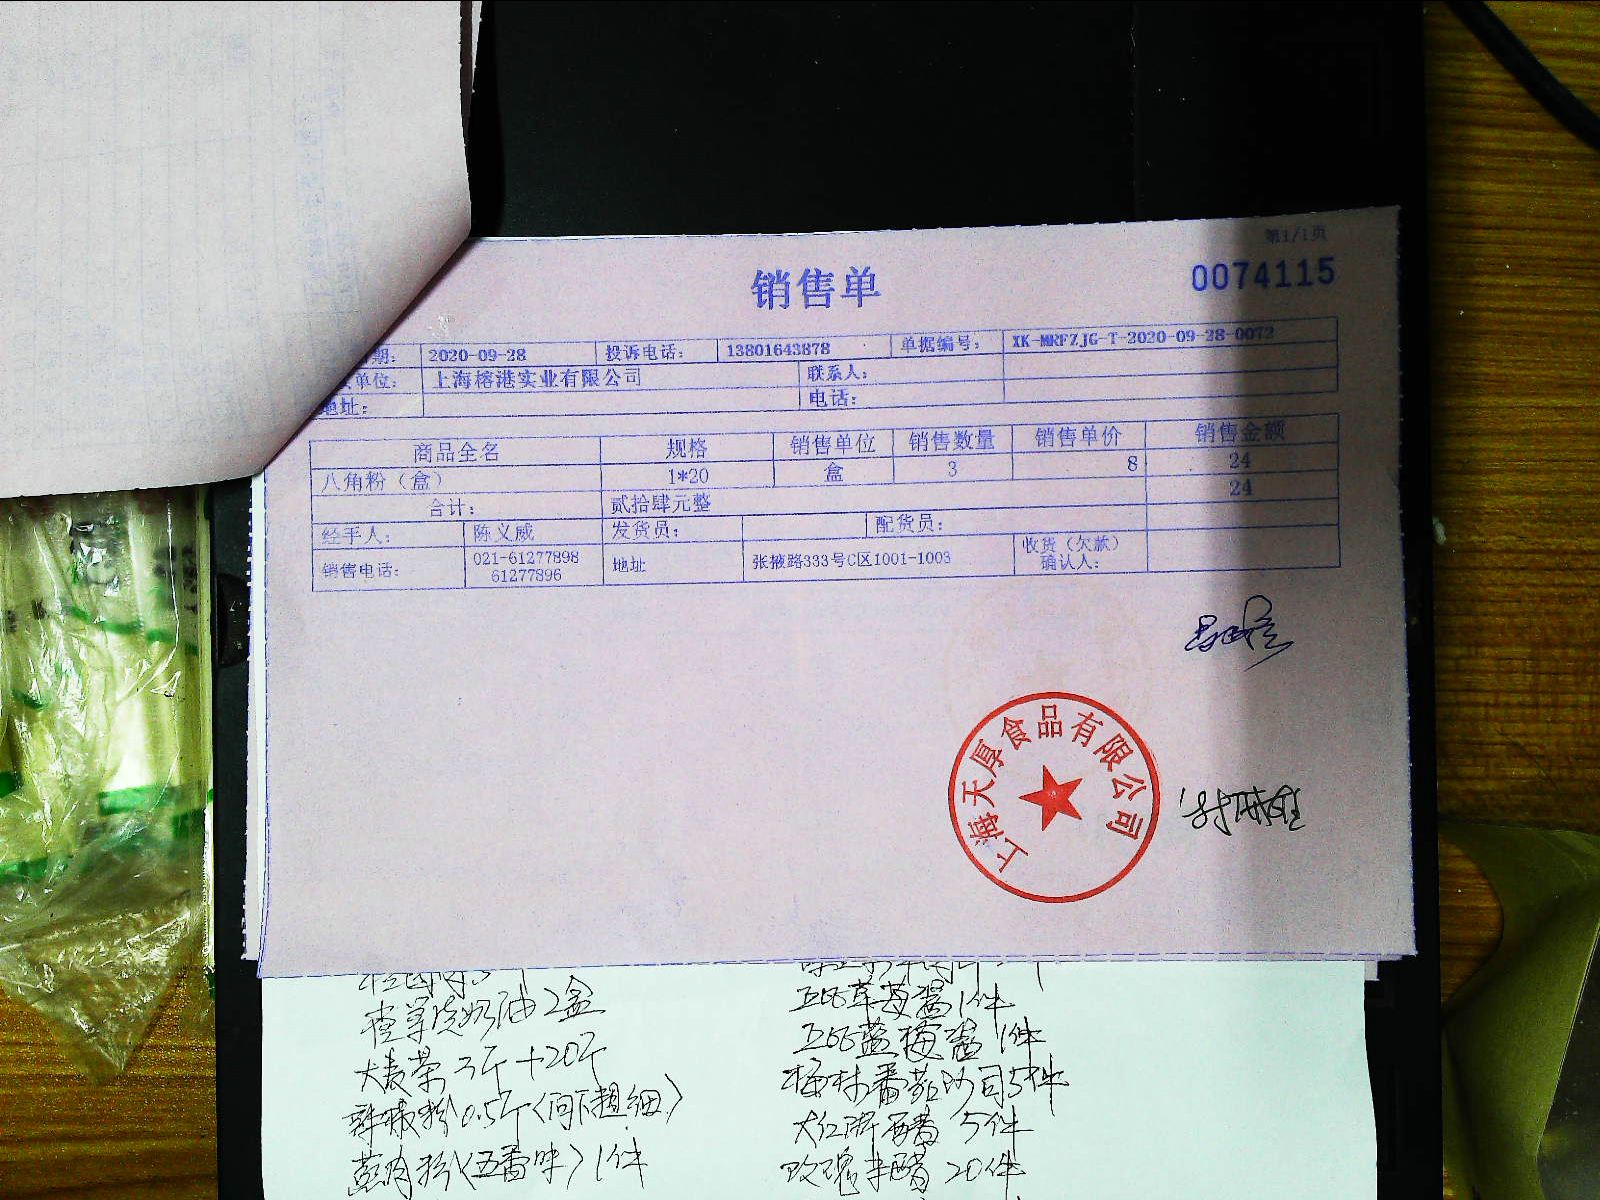 第1/1页
销售单
0074115
期： 2020-09-28 投诉电话： 13801643878 单据编号： XK-MRFZJG-T-2020-09-28-0072
单位： 上海榕港实业有限公司 联系人：
地址： 电话：
商品全名 规格 销售单位 销售数量 销售单价 销售金额
八角粉（盒） 1*20 盒 3 8 24
合计： 贰拾肆元整 24
经手人： 陈义威 发货员： 配货员：
销售电话： 021-61277898 61277896 地址 张掖路333号C区1001-1003 收货（欠款）确认人：
上海天厚食品有限公司
奶油2盒
草莓酱1件
大麦茶3斤+20斤
蓝莓酱1件
辣椒粉0.5斤(问下粗细)
梅林番茄沙司5件
(五香味)1件
大红浙醋5件
玫瑰米醋20件